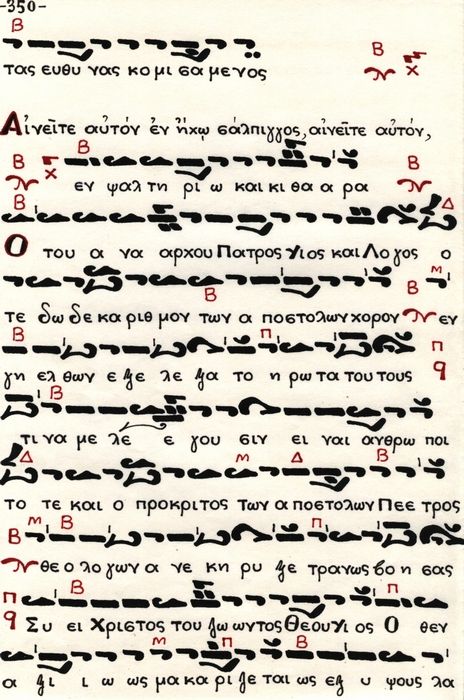 -350-
τας ευθυ νας κο μι σα με νος
Αἰνεῖτε αὐτόν ἐν ἤχῳ σάλπιγγος, αἰνεῖτε αὐτόν,
εν ψαλ τη ρι ω και κι θα α ρα
Ο του α να αρχου Πατρος Υιος και Λογος ο
τε δω δε κα ριθ μον των α ποστολων χορον εν
γη ελ θων ε ξε λε ξα το η ρω τα του τους
τι να με λε ε γου σιν ει ναι ανθρω ποι
το τε και ο προκριτος των α ποστολων Πεε τρος
θε ο λο γων α νε κη ρυ ξε τρανως βο η σας
Συ ει Χριστος του ζω ωντος Θεου Υι ος Ο θεν
α ξι ι ω ως μα κα ρι ζε ται ως εξ υ ψους λα